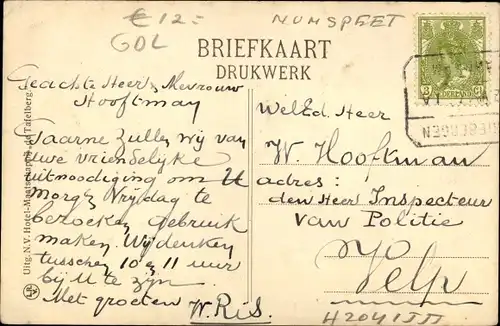 € 12=
GOL
NUMSPEET
BRIEFKAART
DRUKWERK
Geachte Heer & Mevrouw
Hooftman
Gaarne zullen wij van
uwe vriendelijke
uitnoodiging om U
morgen Vrijdag te
bezoeken gebruik
maken. Wij denken
tusschen 10 en 11 uur
bij U te zijn.
Met groeten
W. Ris.
Uitg. N.V. Hotel-Maatschappij de Tafelberg
WelEd. Heer
W. Hooftman
adres:
den Heer Inspecteur
van Politie
Velp
NEDERLAND
3 Ct